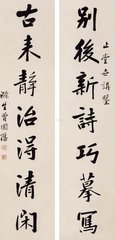 止堂世講鑒
别後新詩巧摹寫
古来靜治得清閑
滌生曾國藩